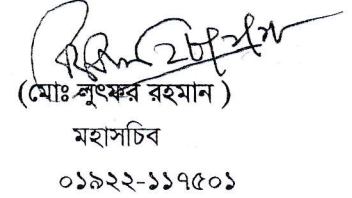 (মোঃ লুৎফর রহমান )
মহাসচিব
০১৯২২-১১৭৫০১